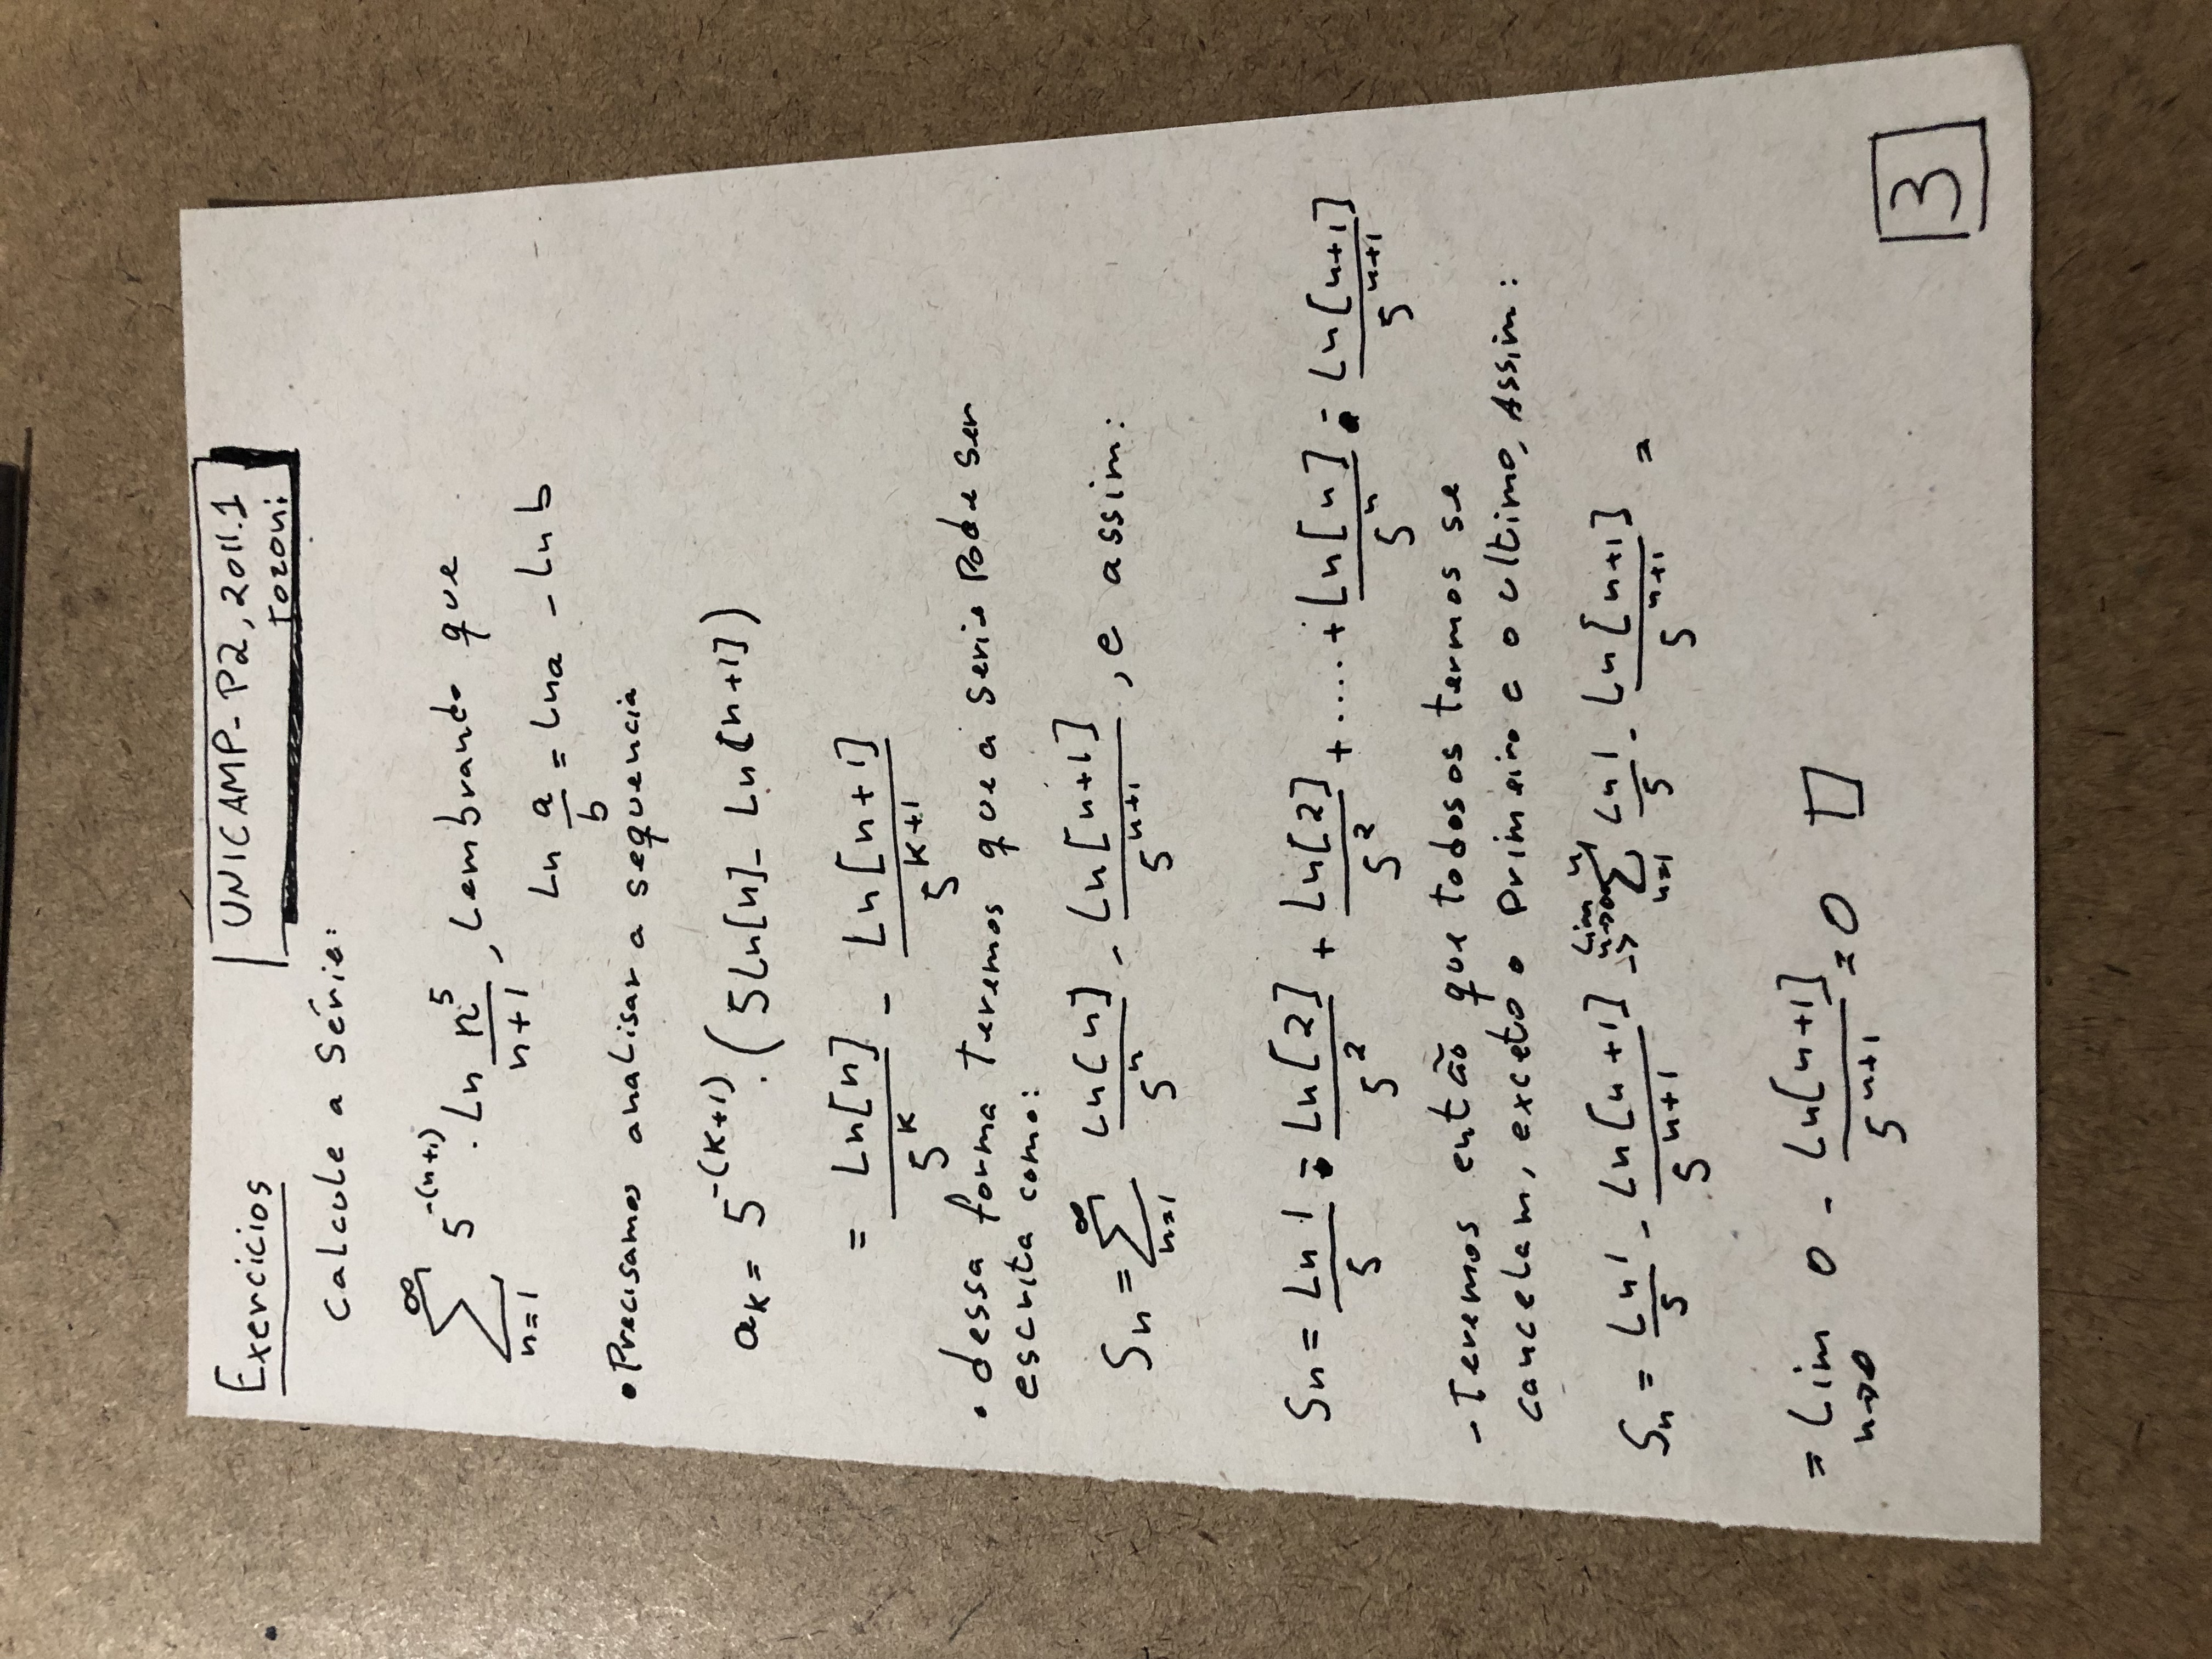 Exercicios
UNICAMP- P2, 2011.1
Tozoni
Calcule a Série:
∞
∑ 5^-(n+1) · Ln n^5/(n+1), Lembrando que
n=1
Ln a/b = Lna - Ln b
• Precisamos analisar a sequencia
a_k = 5^-(k+1) · (5Ln[n] - Ln[n+1])
= Ln[n]/5^k - Ln[n+1]/5^(k+1)
• dessa forma Teremos que a serie Pode ser
escrita como:
Sn = ∑_(n=1)^∞ Ln[n]/5^n - Ln[n+1]/5^(n+1), e assim:
Sn = Ln 1/5 - Ln[2]/5^2 + Ln[2]/5^2 + .... + Ln[n]/5^n - Ln[n+1]/5^(n+1)
- Teremos então que todos os termos se
cancelam, exceto o Primeiro e o ultimo, Assim:
Sn = Ln 1/5 - Ln[n+1]/5^(n+1) → lim_(n→∞) ∑_(n=1)^n Ln 1/5 - Ln[n+1]/5^(n+1) =
= Lim_(n→∞) 0 - Ln[n+1]/5^(n+1) = 0 □
3